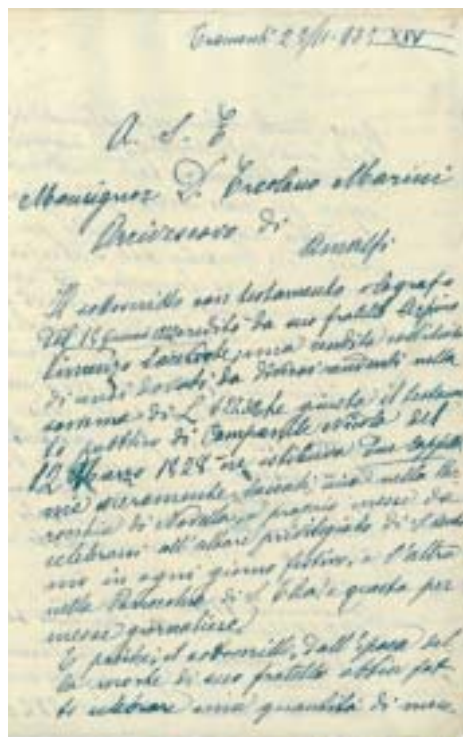 Tramonti 23/11-935 XIV
A. S. E
Monsignor D. Ercolano Marini
Arcivescovo di
Amalfi
Il sottoscritto con testamento olografo
del 15 ereditò da suo fratello
Sacerdote, una rendita
di annui ducati da diversi rendenti nella
somma di L. che giusta il testamen
to pubblico di Campanile notato del
12 Marzo 1828 ne istituiva due cappella
nie meramente laicali una nella Par
rocchia di Novella e proprio messe da
celebrarsi all'altare privilegiato di S.
no in ogni giorno festivo, e l'altra
nella Parrocchia di S. Elia e questa per
messe giornaliere.
E poichè, il sottoscritto, dall'epoca del
la morte di suo fratello abbia fat
to celebrare una quantità di messe